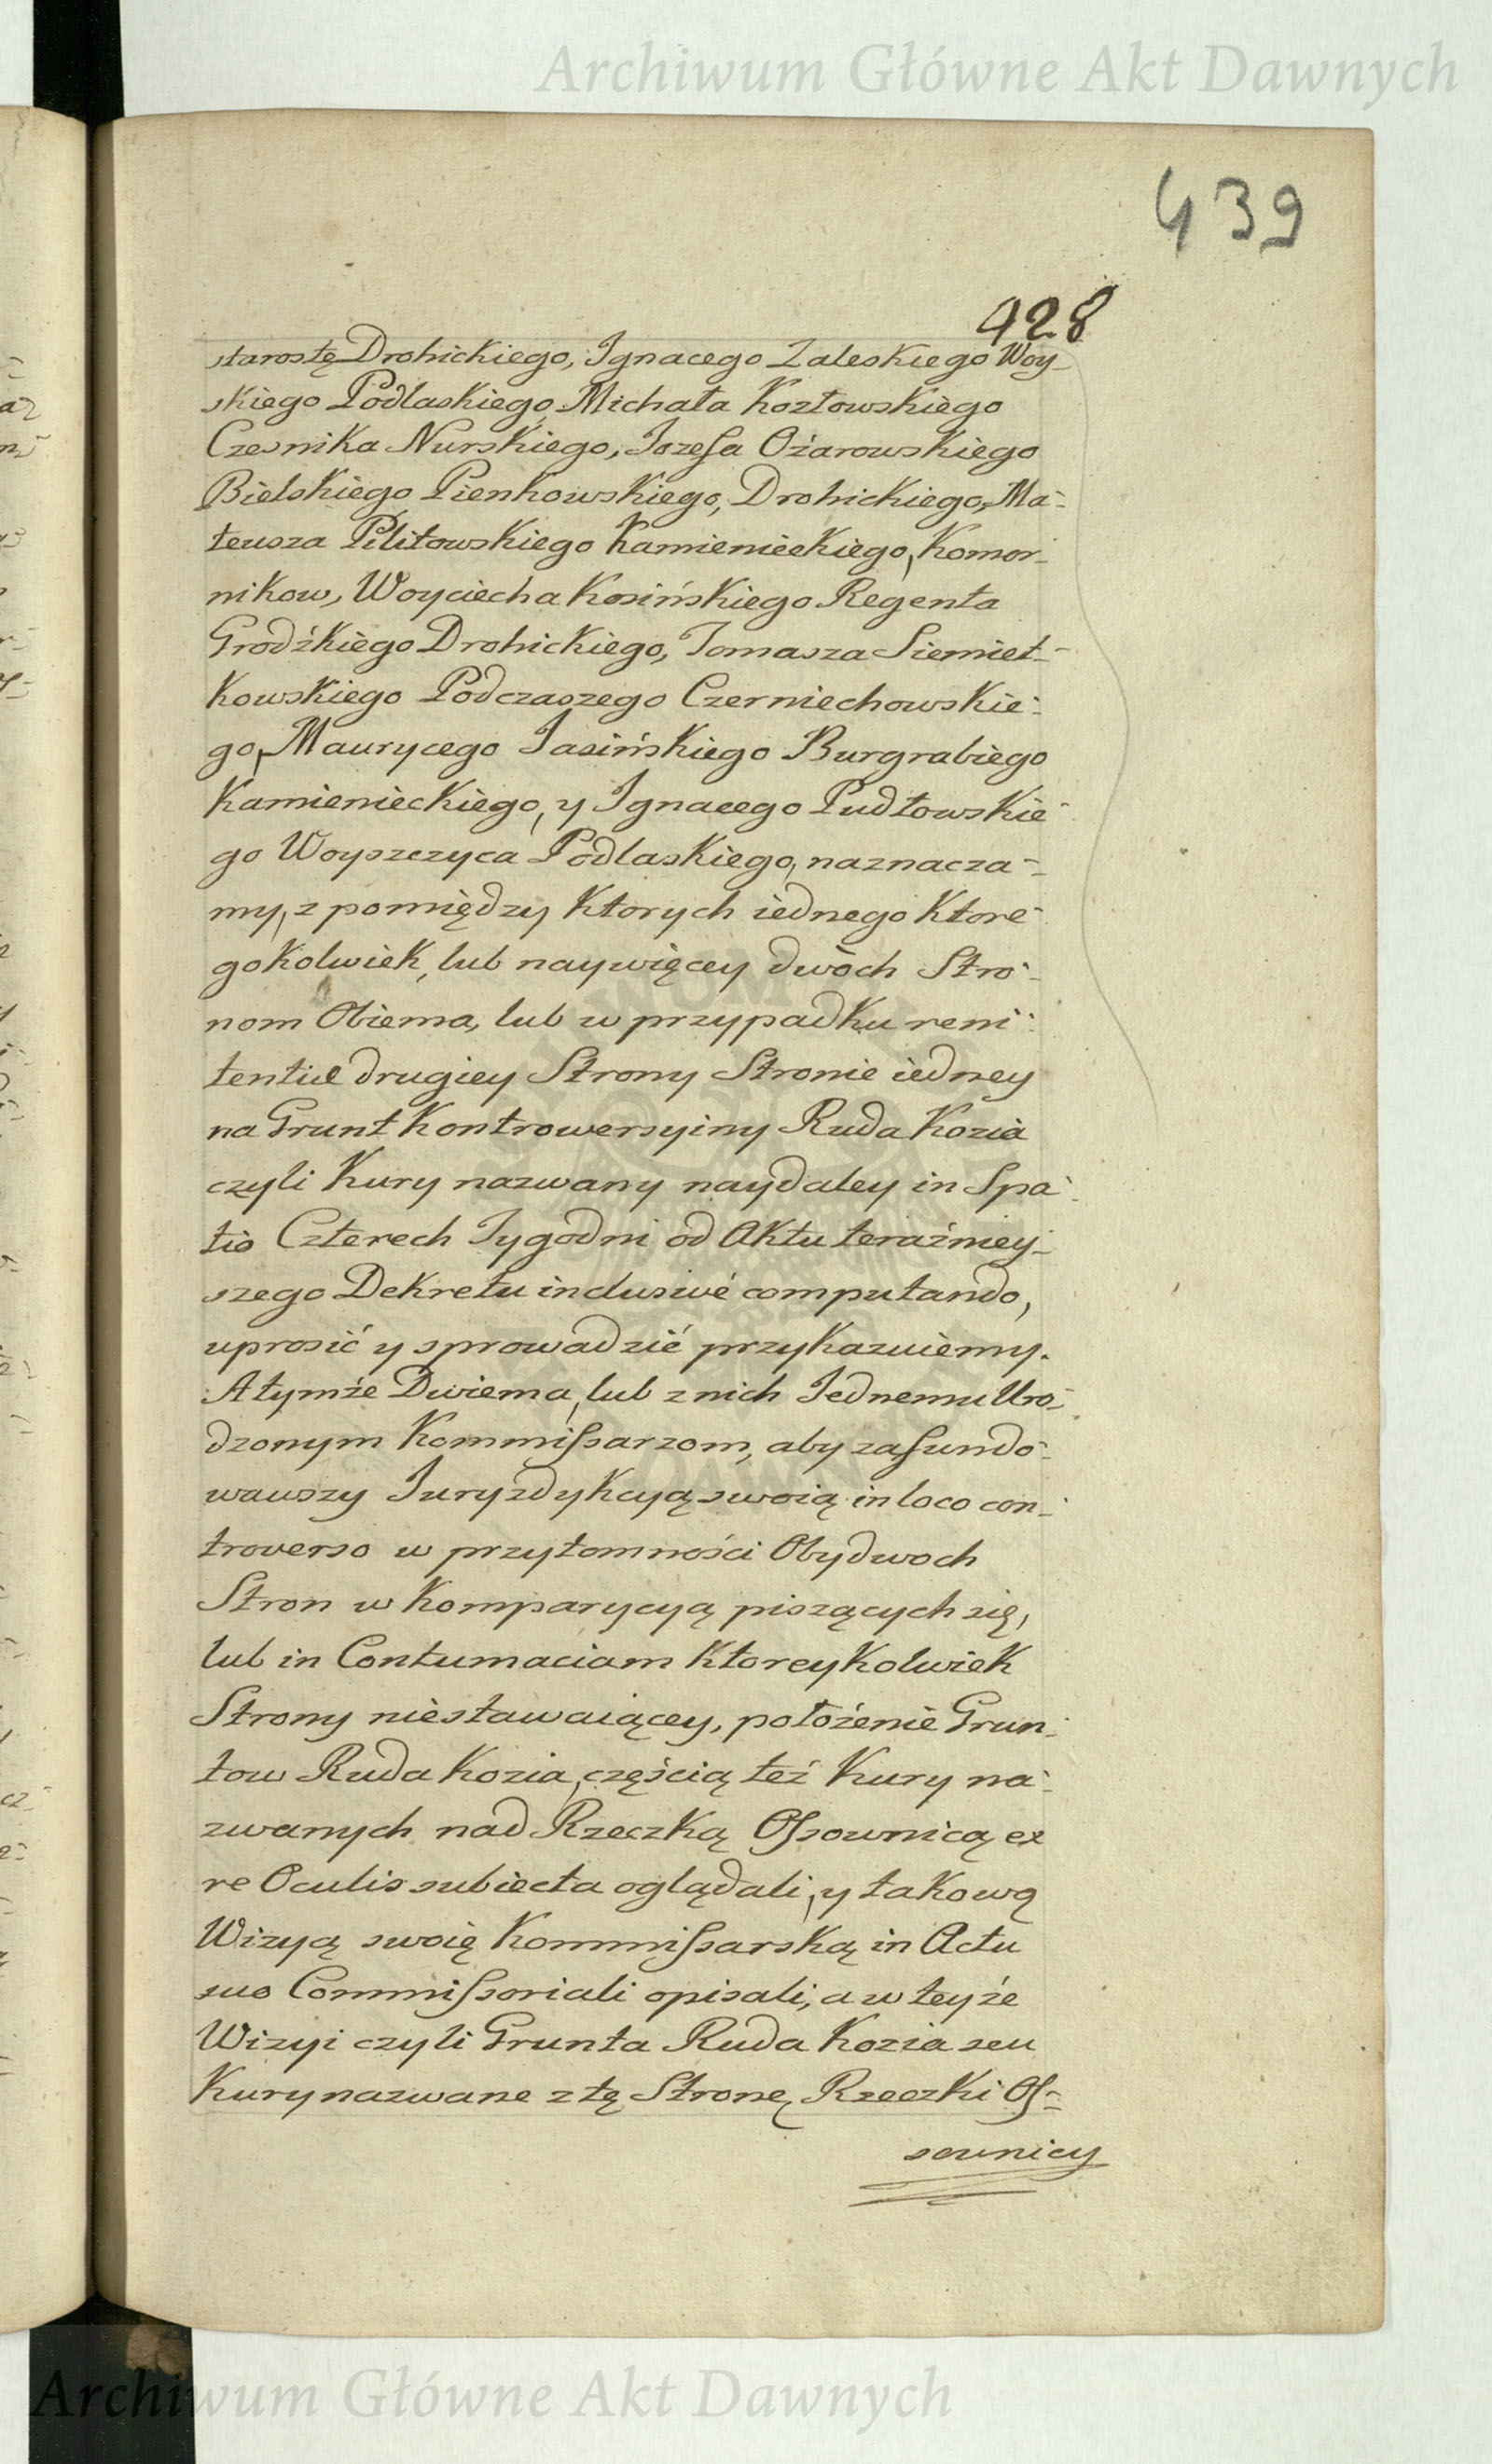 Archiwum Główne Akt Dawnych
439
428
starostę Drohickiego, Ignacego Zaleskiego Woy-
skiego Podlaskiego, Michała Kozłowskiego
Czesnika Nurskiego, Jozefa Ożarowskiego
Bielskiego Pienkowskiego, Drohickiego, Ma-
teusza Pilitowskiego Kamienieckiego, Komor-
nikow, Woyciecha Kosińskiego Regenta
Grodźkiego Drohickiego, Tomasza Siemiet-
kowskiego Podczaszego Czerniechowskie-
go, Maurycego Jasińskiego Burgrabiego
Kamienieckiego, y Ignacego Pudłowskie-
go Woyszczyca Podlaskiego, naznacza-
my, z pomiędzy ktorych iednego ktore-
gokolwiek, lub naywięcey dwoch Stro-
nom Obiema, lub w przypadku reni-
tentiæ drugiey Strony Stronie iedney
na Grunt Kontrowersyiny Ruda Kozia
czyli Kury nazwany naydaley in Spa-
tio Czterech Tygodni od Aktu teraźniey-
szego Dekretu inclusivé computando,
uprosić y sprowadzić przykazuiemy.
A tymże Dwiema, lub z nich Jednemu Uro-
dzonym Kommissarzom, aby zafundo-
wawszy Juryzdykcyą swoią in loco con-
troverso w przytomności Obydwoch
Stron w Komparycyą piszących się,
lub in Contumaciam ktoreykolwiek
Strony niestawaiącey, położenie Grun-
tow Ruda Kozia, częścią też Kury na-
zwanych nad Rzeczką Ossownicą ex
re Oculis subiecta oglądali, y takową
Wizyą swoię Kommissarską in Actu
suo Commissoriali opisali, a w teyże
Wizyi czyli Grunta Ruda Kozia seu
Kury nazwane z tę Stronę Rzeczki Os-
sownicy
Archiwum Główne Akt Dawnych